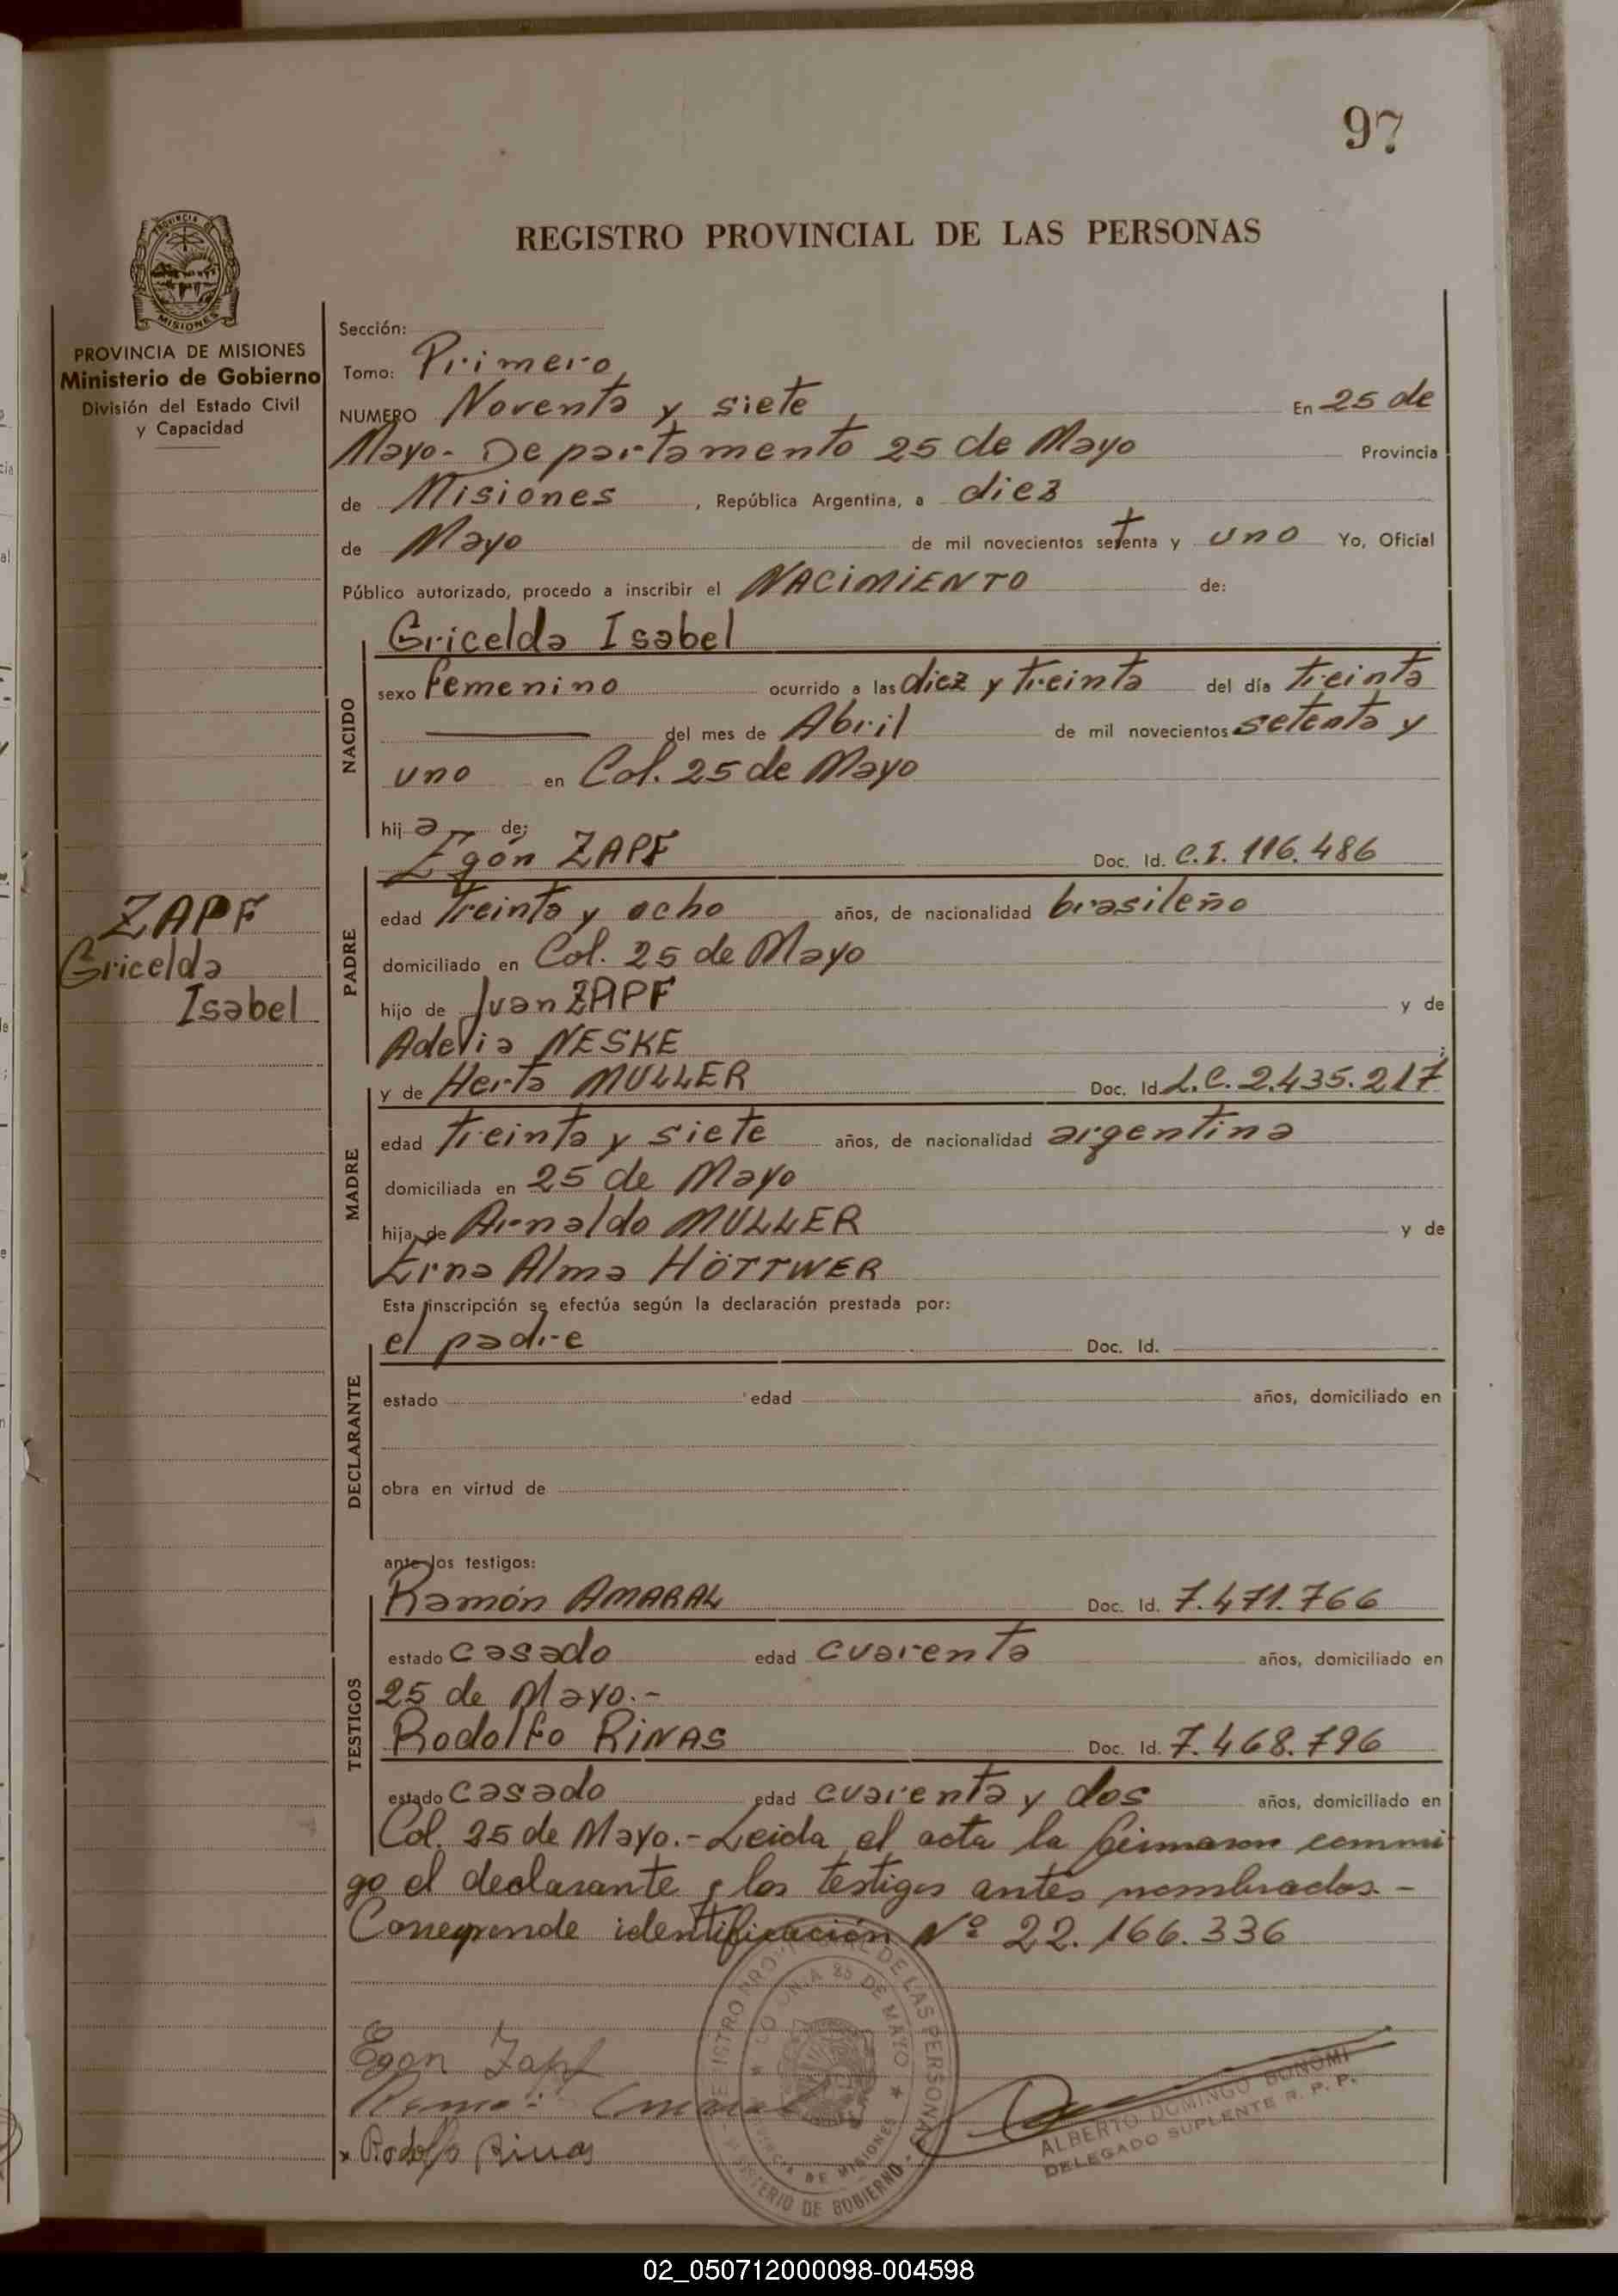 97
REGISTRO PROVINCIAL DE LAS PERSONAS
PROVINCIA
MISIONES
PROVINCIA DE MISIONES
Ministerio de Gobierno
División del Estado Civil
y Capacidad
ZAPF
Gricelda
Isabel
Sección:
Tomo: Primero
NUMERO Noventa y siete En 25 de
Mayo.- Departamento 25 de Mayo Provincia
de Misiones, República Argentina, a diez
de Mayo de mil novecientos setenta y uno Yo, Oficial
Público autorizado, procedo a inscribir el NACIMIENTO de:
NACIDO
Gricelda Isabel
sexo femenino ocurrido a las diez y treinta del día treinta
del mes de Abril de mil novecientos setenta y
uno en Col. 25 de Mayo
hija de;
PADRE
Egón ZAPF Doc. Id. C.I. 116.486
edad treinta y ocho años, de nacionalidad brasileño
domiciliado en Col. 25 de Mayo
hijo de Juan ZAPF y de
Adelia NESKE ;
MADRE
y de Herta MULLER Doc. Id. L.C. 2.435.217
edad treinta y siete años, de nacionalidad argentina
domiciliada en 25 de Mayo
hija de Arnaldo MULLER y de
Erna Alma HÖTTWER
Esta inscripción se efectúa según la declaración prestada por:
DECLARANTE
el padre Doc. Id.
estado edad años, domiciliado en
obra en virtud de
ante los testigos:
TESTIGOS
Ramón AMARAL Doc. Id. 7.471.766
estado casado edad cuarenta años, domiciliado en
25 de Mayo.-
Rodolfo RINAS Doc. Id. 7.468.796
estado casado edad cuarenta y dos años, domiciliado en
Col. 25 de Mayo.- Leida el acta la firmaron conmi
go el declarante y los testigos antes nombrados.-
Corresponde identificación Nº 22.166.336
Egon Zapf
Rodolfo Rinas
REGISTRO PROVINCIAL DE LAS PERSONAS
COLONIA 25 DE MAYO
PROVINCIA DE MISIONES
MINISTERIO DE GOBIERNO
ALBERTO DOMINGO BONOMI
DELEGADO SUPLENTE R. P. P.
02_050712000098-004598